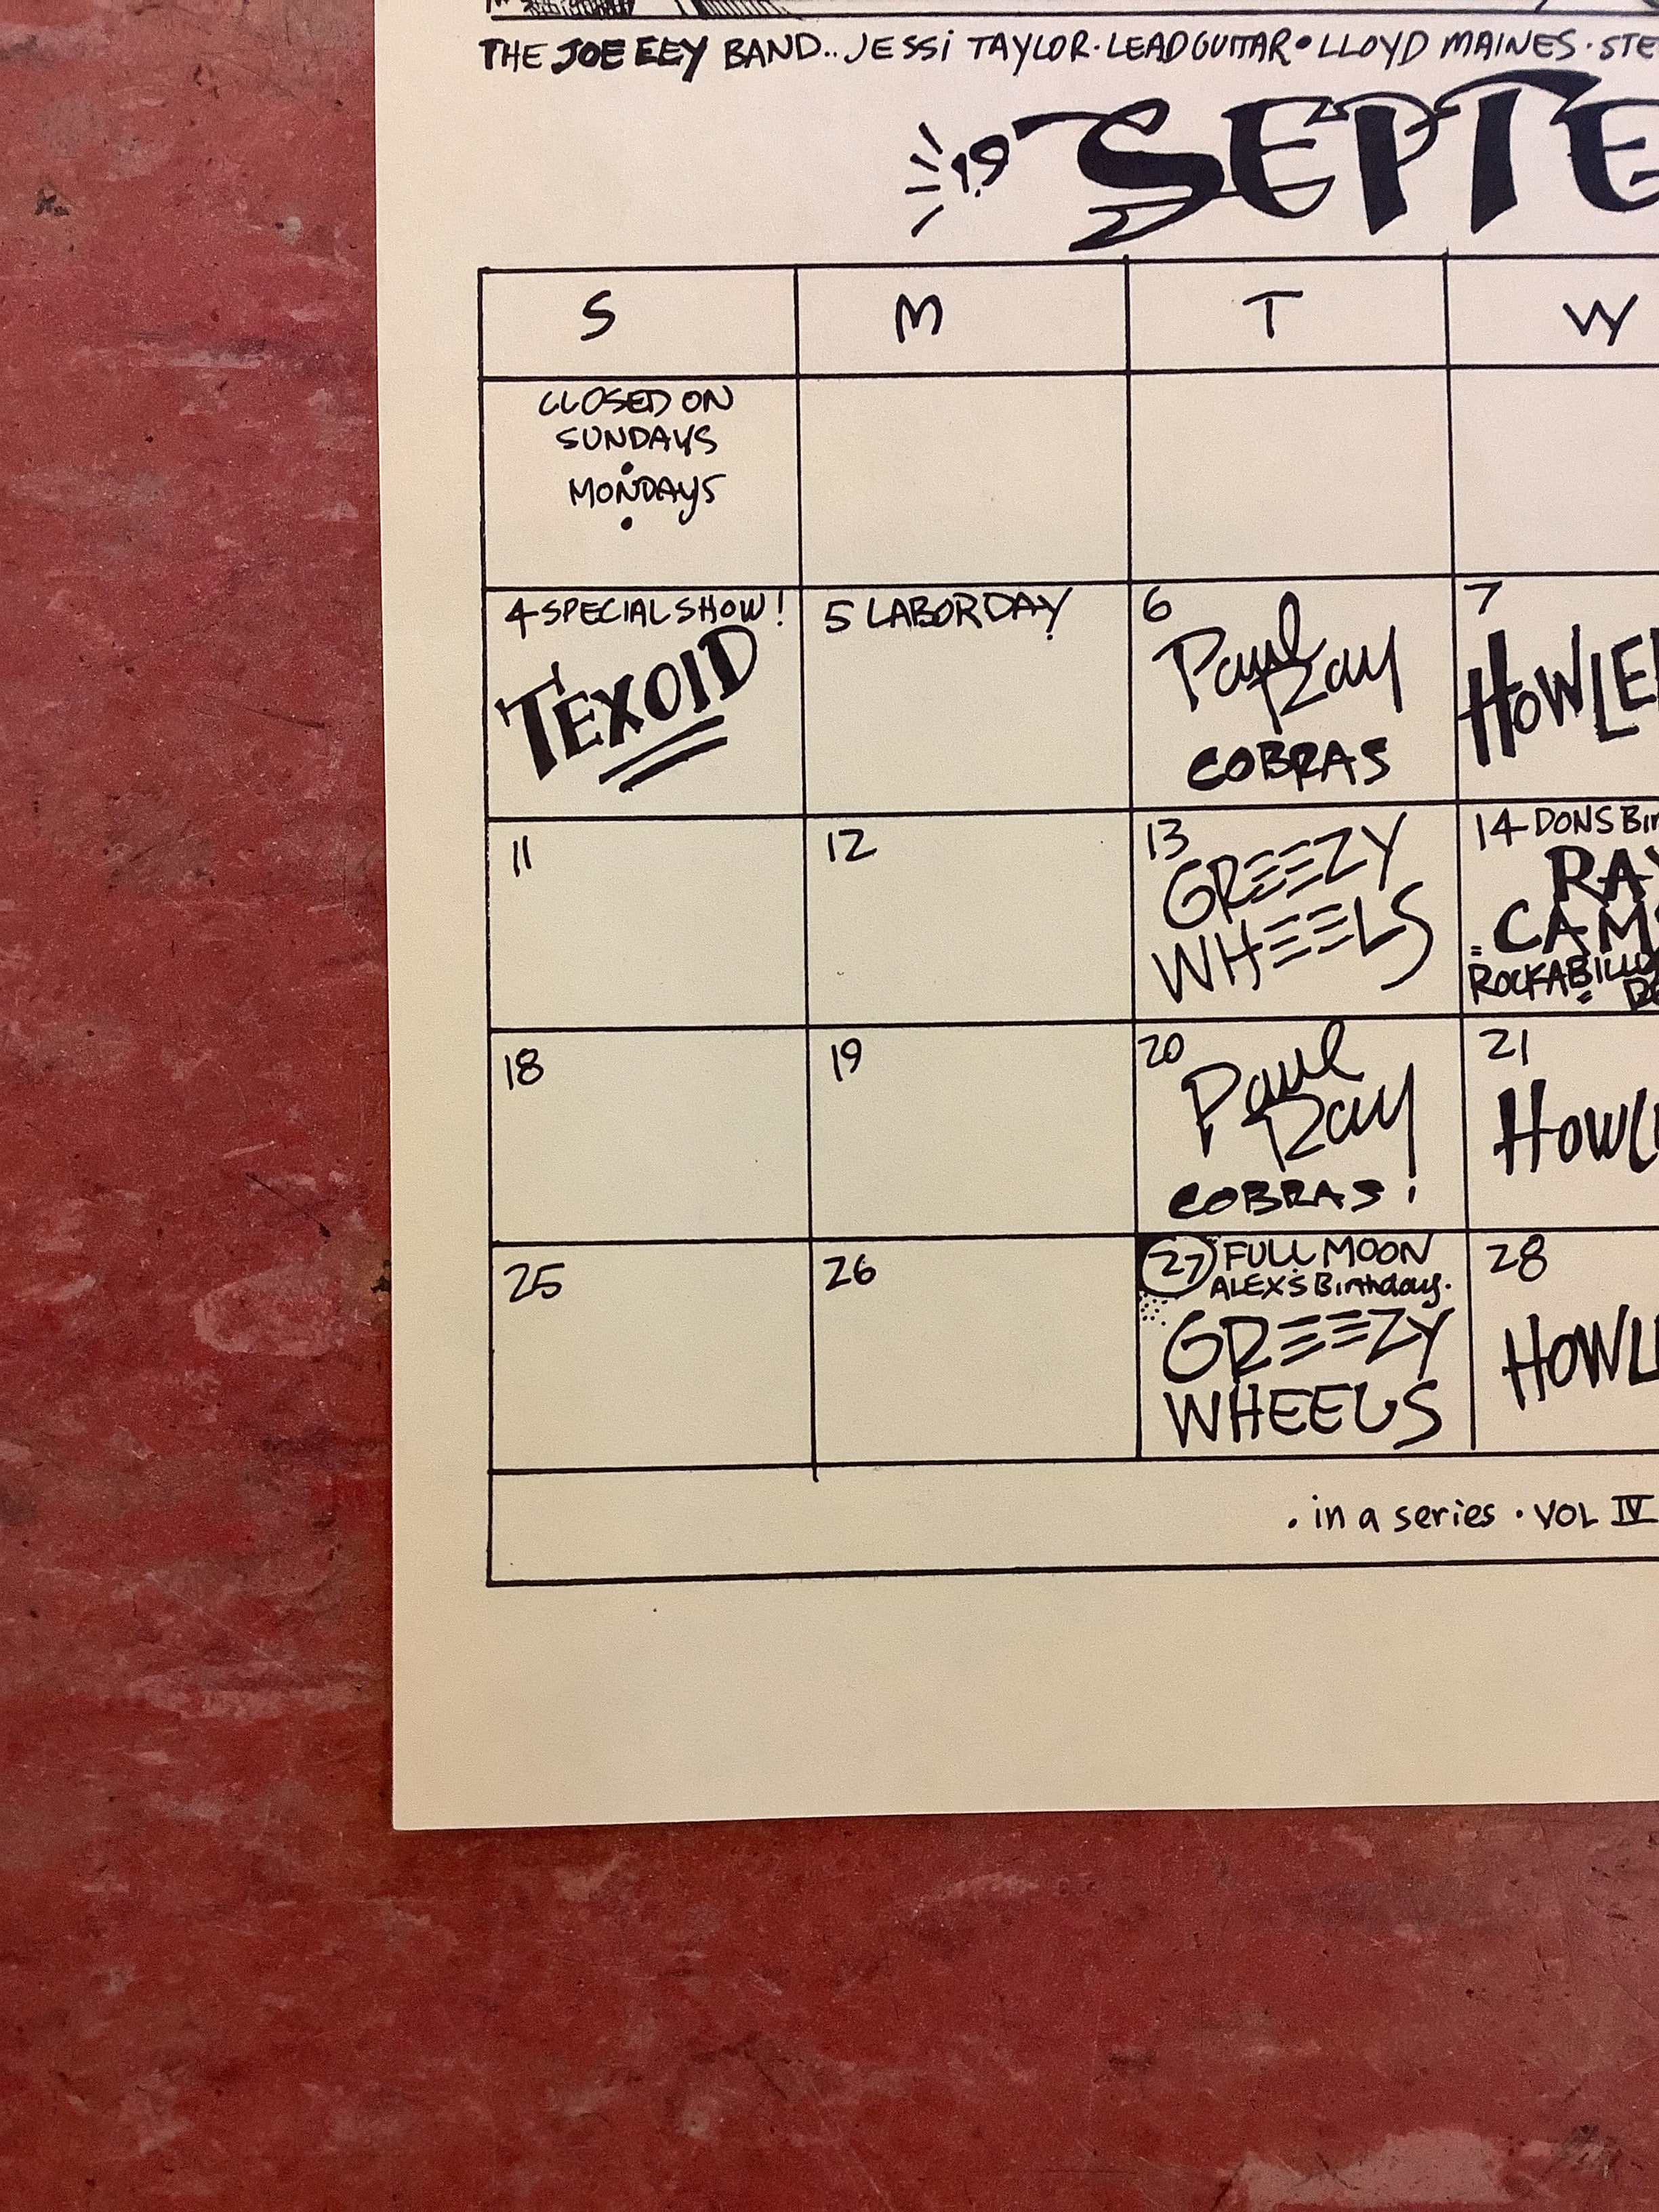 THE JOE ELY BAND.. JESSI TAYLOR · LEAD GUITAR • LLOYD MAINES · STE
19 SEPTE
S M T W
CLOSED ON
SUNDAYS
•
MONDAYS
•
4 SPECIAL SHOW!
TEXOID
5 LABOR DAY
6
Paul
Ray
COBRAS
7
HOWLE
11
12
13
GREEZY
WHEELS
14 DONS Bir
RAY
CAM
ROCKABILLY
RE
18
19
20
Paul
Ray
COBRAS!
21
HOWL
25
26
27 FULL MOON
ALEX'S Birthday.
GREEZY
WHEELS
28
HOWL
. in a series · VOL IV